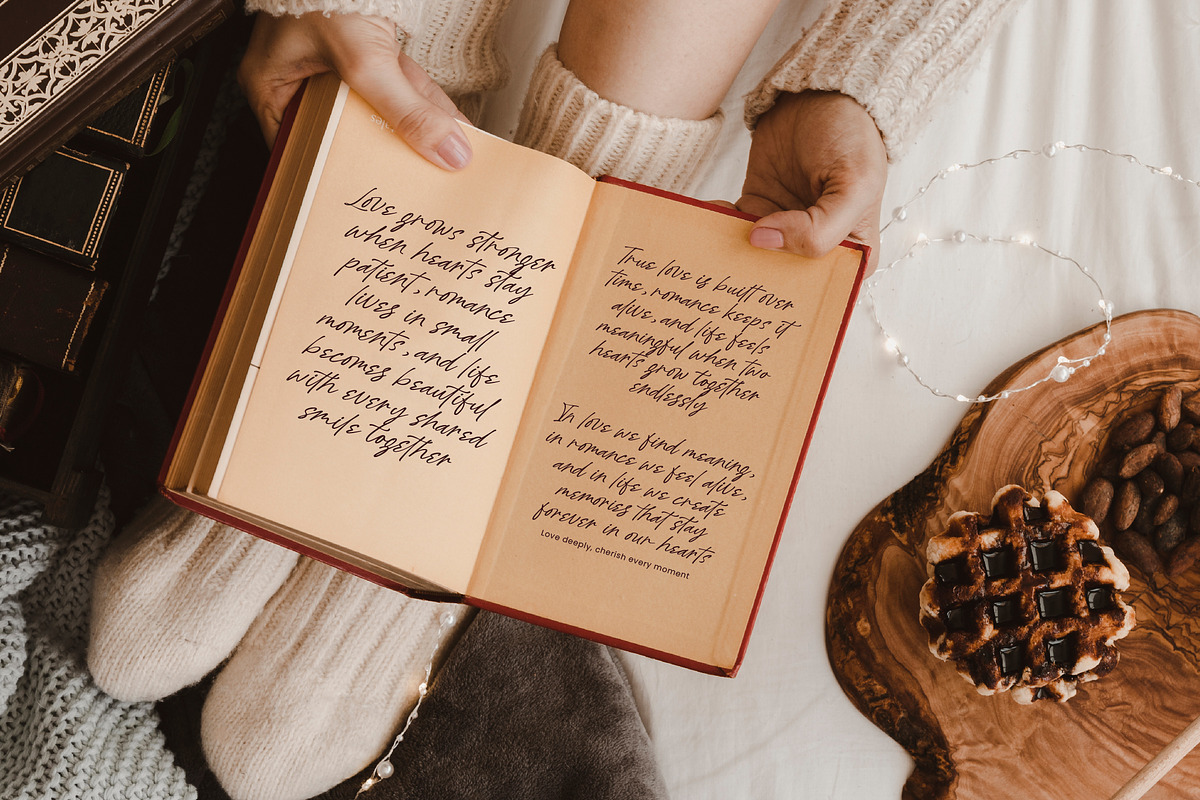 Love grows stronger
when hearts stay
patient, romance
lives in small
moments, and life
becomes beautiful
with every shared
smile together
True love is built over
time, romance keeps it
alive, and life feels
meaningful when two
hearts grow together
endlessly
In love we find meaning,
in romance we feel alive,
and in life we create
memories that stay
forever in our hearts
Love deeply, cherish every moment